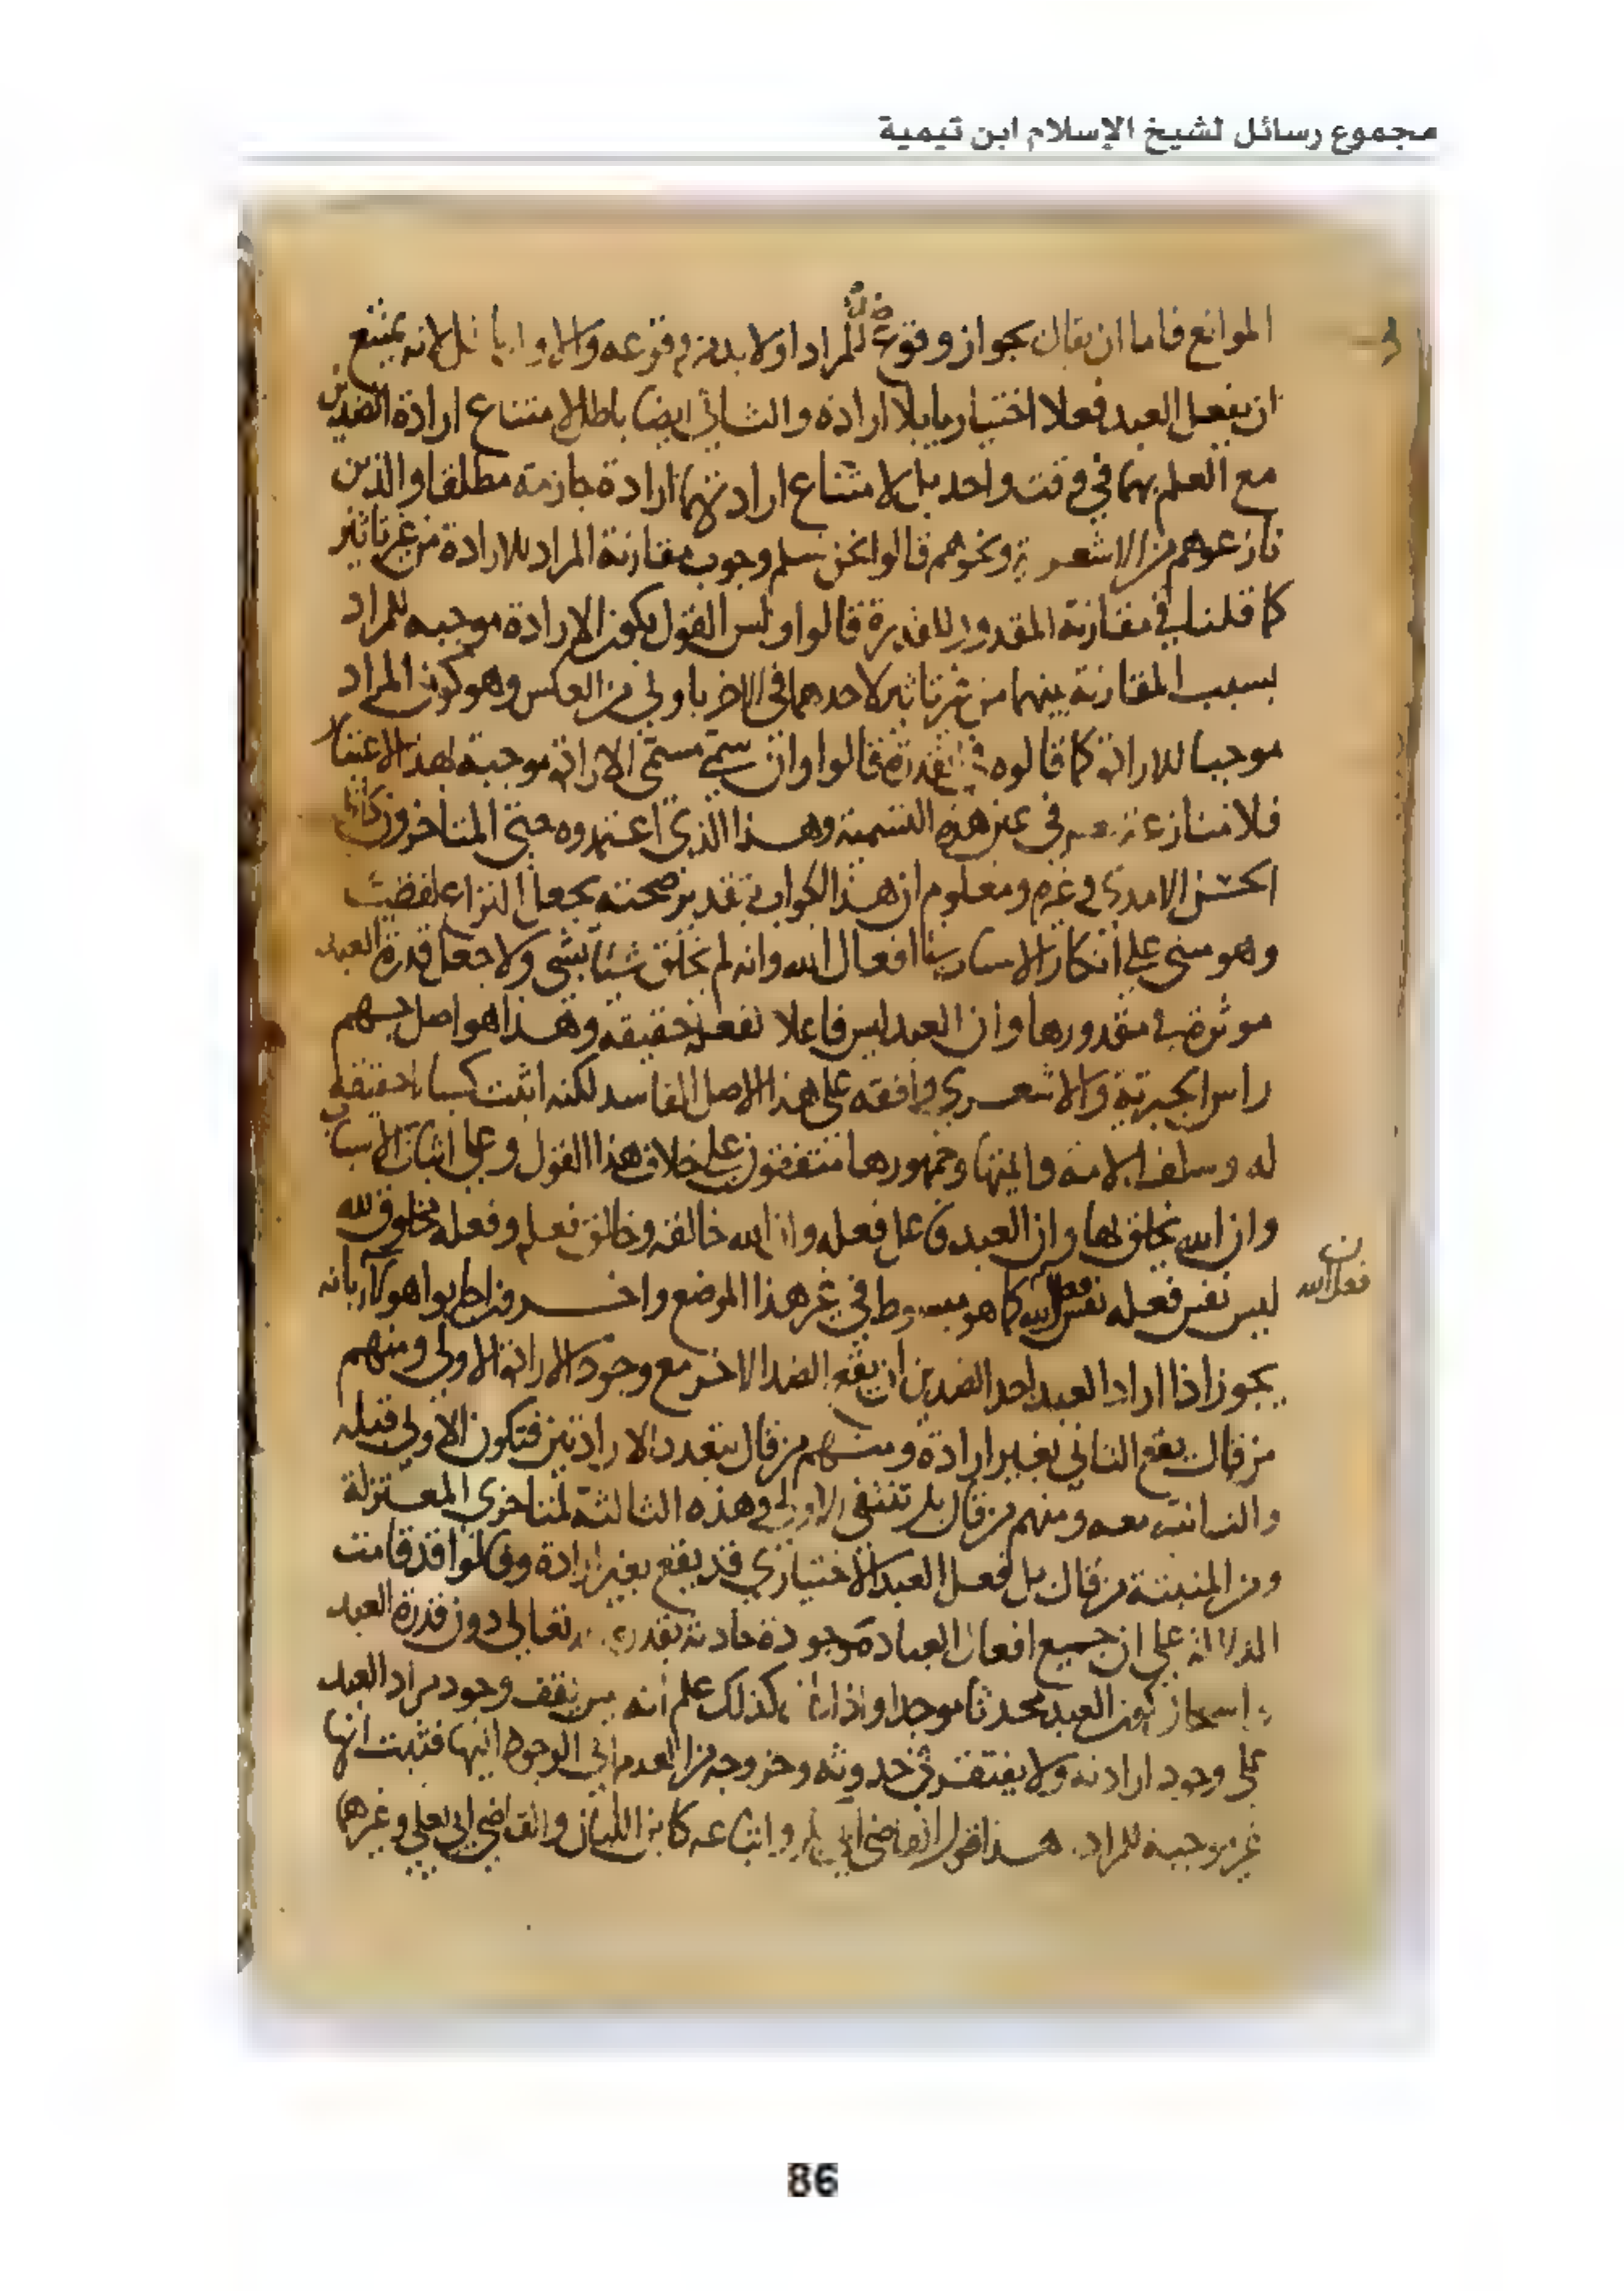 مجموع رسائل لشيخ الإسلام ابن تيمية
الموانع فاما ان يقال بجواز وقوع المراد اولا بد من وقوعه والاول باطل لانه يمتنع
ان يفعل العبد فعلا اختياريا بلا ارادة والثاني ايضا باطل لامتناع ارادة الضدين
مع العلم بهما في وقت واحد بل لامتناع ارادتهما ارادة جازمة مطلقا والذين
نازعوهم من الاشعرية ونحوهم قالوا نحن نسلم وجوب مقارنة المراد للارادة من غير تاثير
كما قلنا في مقارنة المقدور للقدرة قالوا وليس القول بكون الارادة موجبه للمراد
بسبب المقارنة بينهما من غير تاثير لاحدهما في الاخر باولى من العكس وهو كون المراد
موجبا للارادة كما قالوه في القدرة قالوا وان سمى مسمى الارادة موجبة لهذا الاعتبار
فلا منازعة معه في غير هذه التسمية وهذا الذي اعتمدوه حتى المتاخرون كابي
الحسن الامدي وغيره ومعلوم ان هذا الجواب بتقدير صحته يجعل النزاع لفظيا
وهو مبني على انكار الاسباب افعال الله وانه لم يخلق شيئا بشي ولا جعل قدرة العبد
موثرة في مقدورها وان العبد ليس فاعلا لفعله حقيقه وهذا هو اصل جهم
راس الجبرية والاشعري وافقه على هذا الاصل الفاسد لكنه اثبت كسبا لا حقيقة
له وسلف الامة وايمتها وجمهورها متفقون على خلاف هذا القول وعلى اثبات الاسباب
وان الله يخلق بها وان العبد فاعل فعله وان الله خالقه وخالق فعله وفعله مخلوق لله
ليس نفس فعله نفس الله كما هو مبسوط في غير هذا الموضع واخرون اجابوا هولاء بانه
ن
فعل الله
يجوز اذا اراد العبد احد الضدين ان يقع الضد الاخر مع وجود الارادة الاولى ومنهم
من قال يقع الثاني بغير ارادة ومنهم من قال بتعدد الارادتين فتكون الاولى قبله
والثانية معه ومنهم من قال بل تنتفي الاولى وهذه الثالثة لمتاخري المعتزلة
ومن المثبتة من قال بل فعل العبد الاختياري قد يقع بغير ارادة وقالوا قد قامت
الدلالة على ان جميع افعال العباد موجودة حادثة بقدرة الله تعالى دون قدرة العبد
واستحاز كون العبد محدثا موجدا واذا كان كذلك علم انه ليس يقف وجود مراد العبد
على وجود ارادته ولا يفتقر في حدوثه وخروجه من العدم الى الوجود اليها فثبت انها
غير موجبة للمراد هذا قول القاضي ابي بكر واتباعه كابن اللبان والقاضي ابي يعلى وغيرهما
86